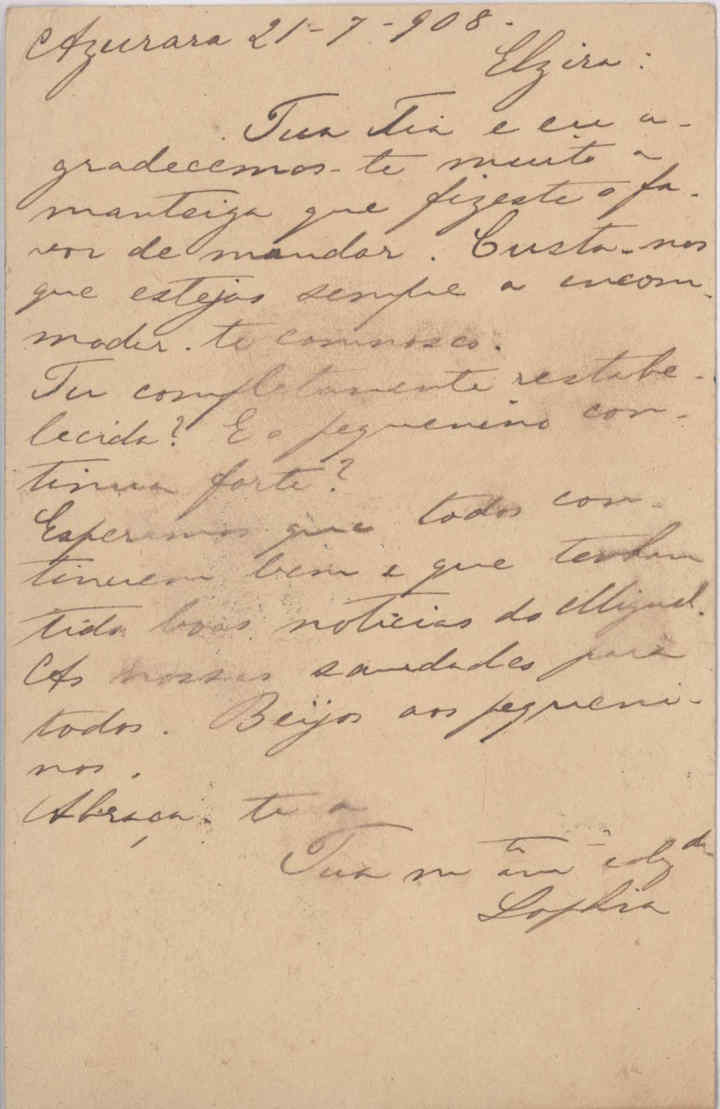 Azurara 21-7-908.
Elzira:
Tua Tia e eu a-
gradecemos-te muito a
manteiga que fizeste o fa-
vor de mandar. Custa-nos
que estejas sempre a incom-
modar-te comnosco.
Tu completamente restabe-
lecida? E o pequenino con-
tinua forte?
Esperamos que todos con-
tinuem bem e que tenham
tido boas noticias do Miguel.
As nossas saudades para
todos. Beijos aos pequeni-
nos.
Abraça-te a
Tua m.to
Sophia